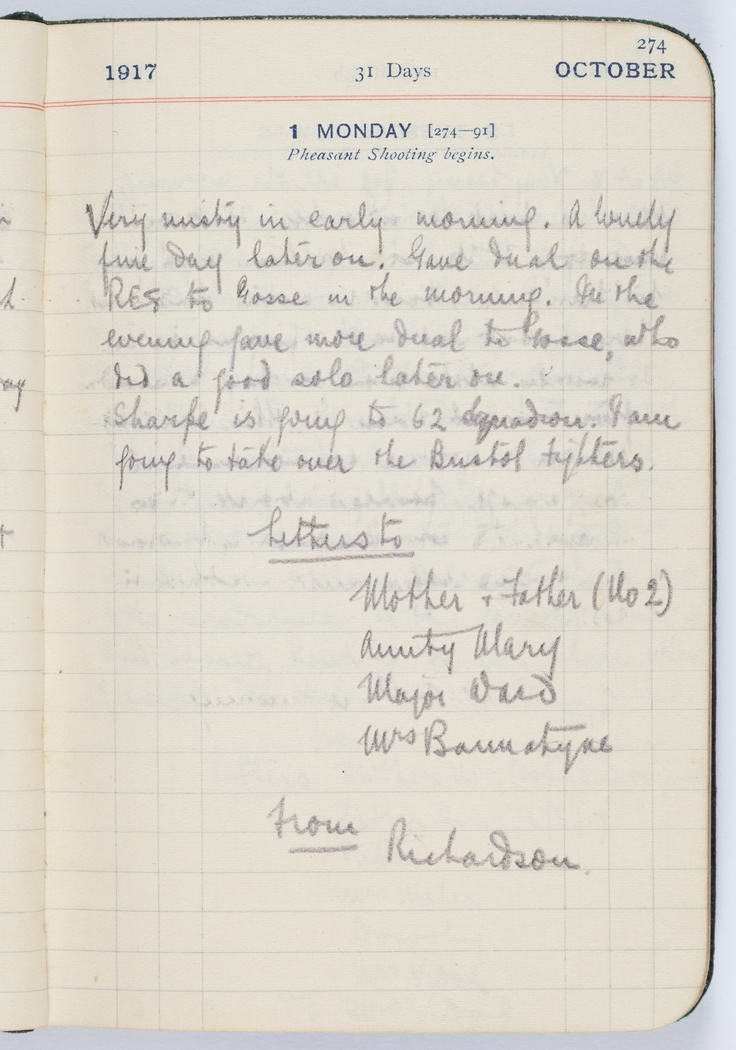 274
1917 31 Days OCTOBER
1 MONDAY [274—91]
Pheasant Shooting begins.
Very misty in early morning. A lovely
fine day later on. Gave dual on the
RE8 to Gosse in the morning. In the
evening gave more dual to Gosse, who
did a good solo later on.
Sharpe is going to 62 Squadron. I am
going to take over the Bristol fighters.
Letters to
Mother + Father (No 2)
Aunty Mary
Major Ward
Mrs Bannatyne
From
Richardson.